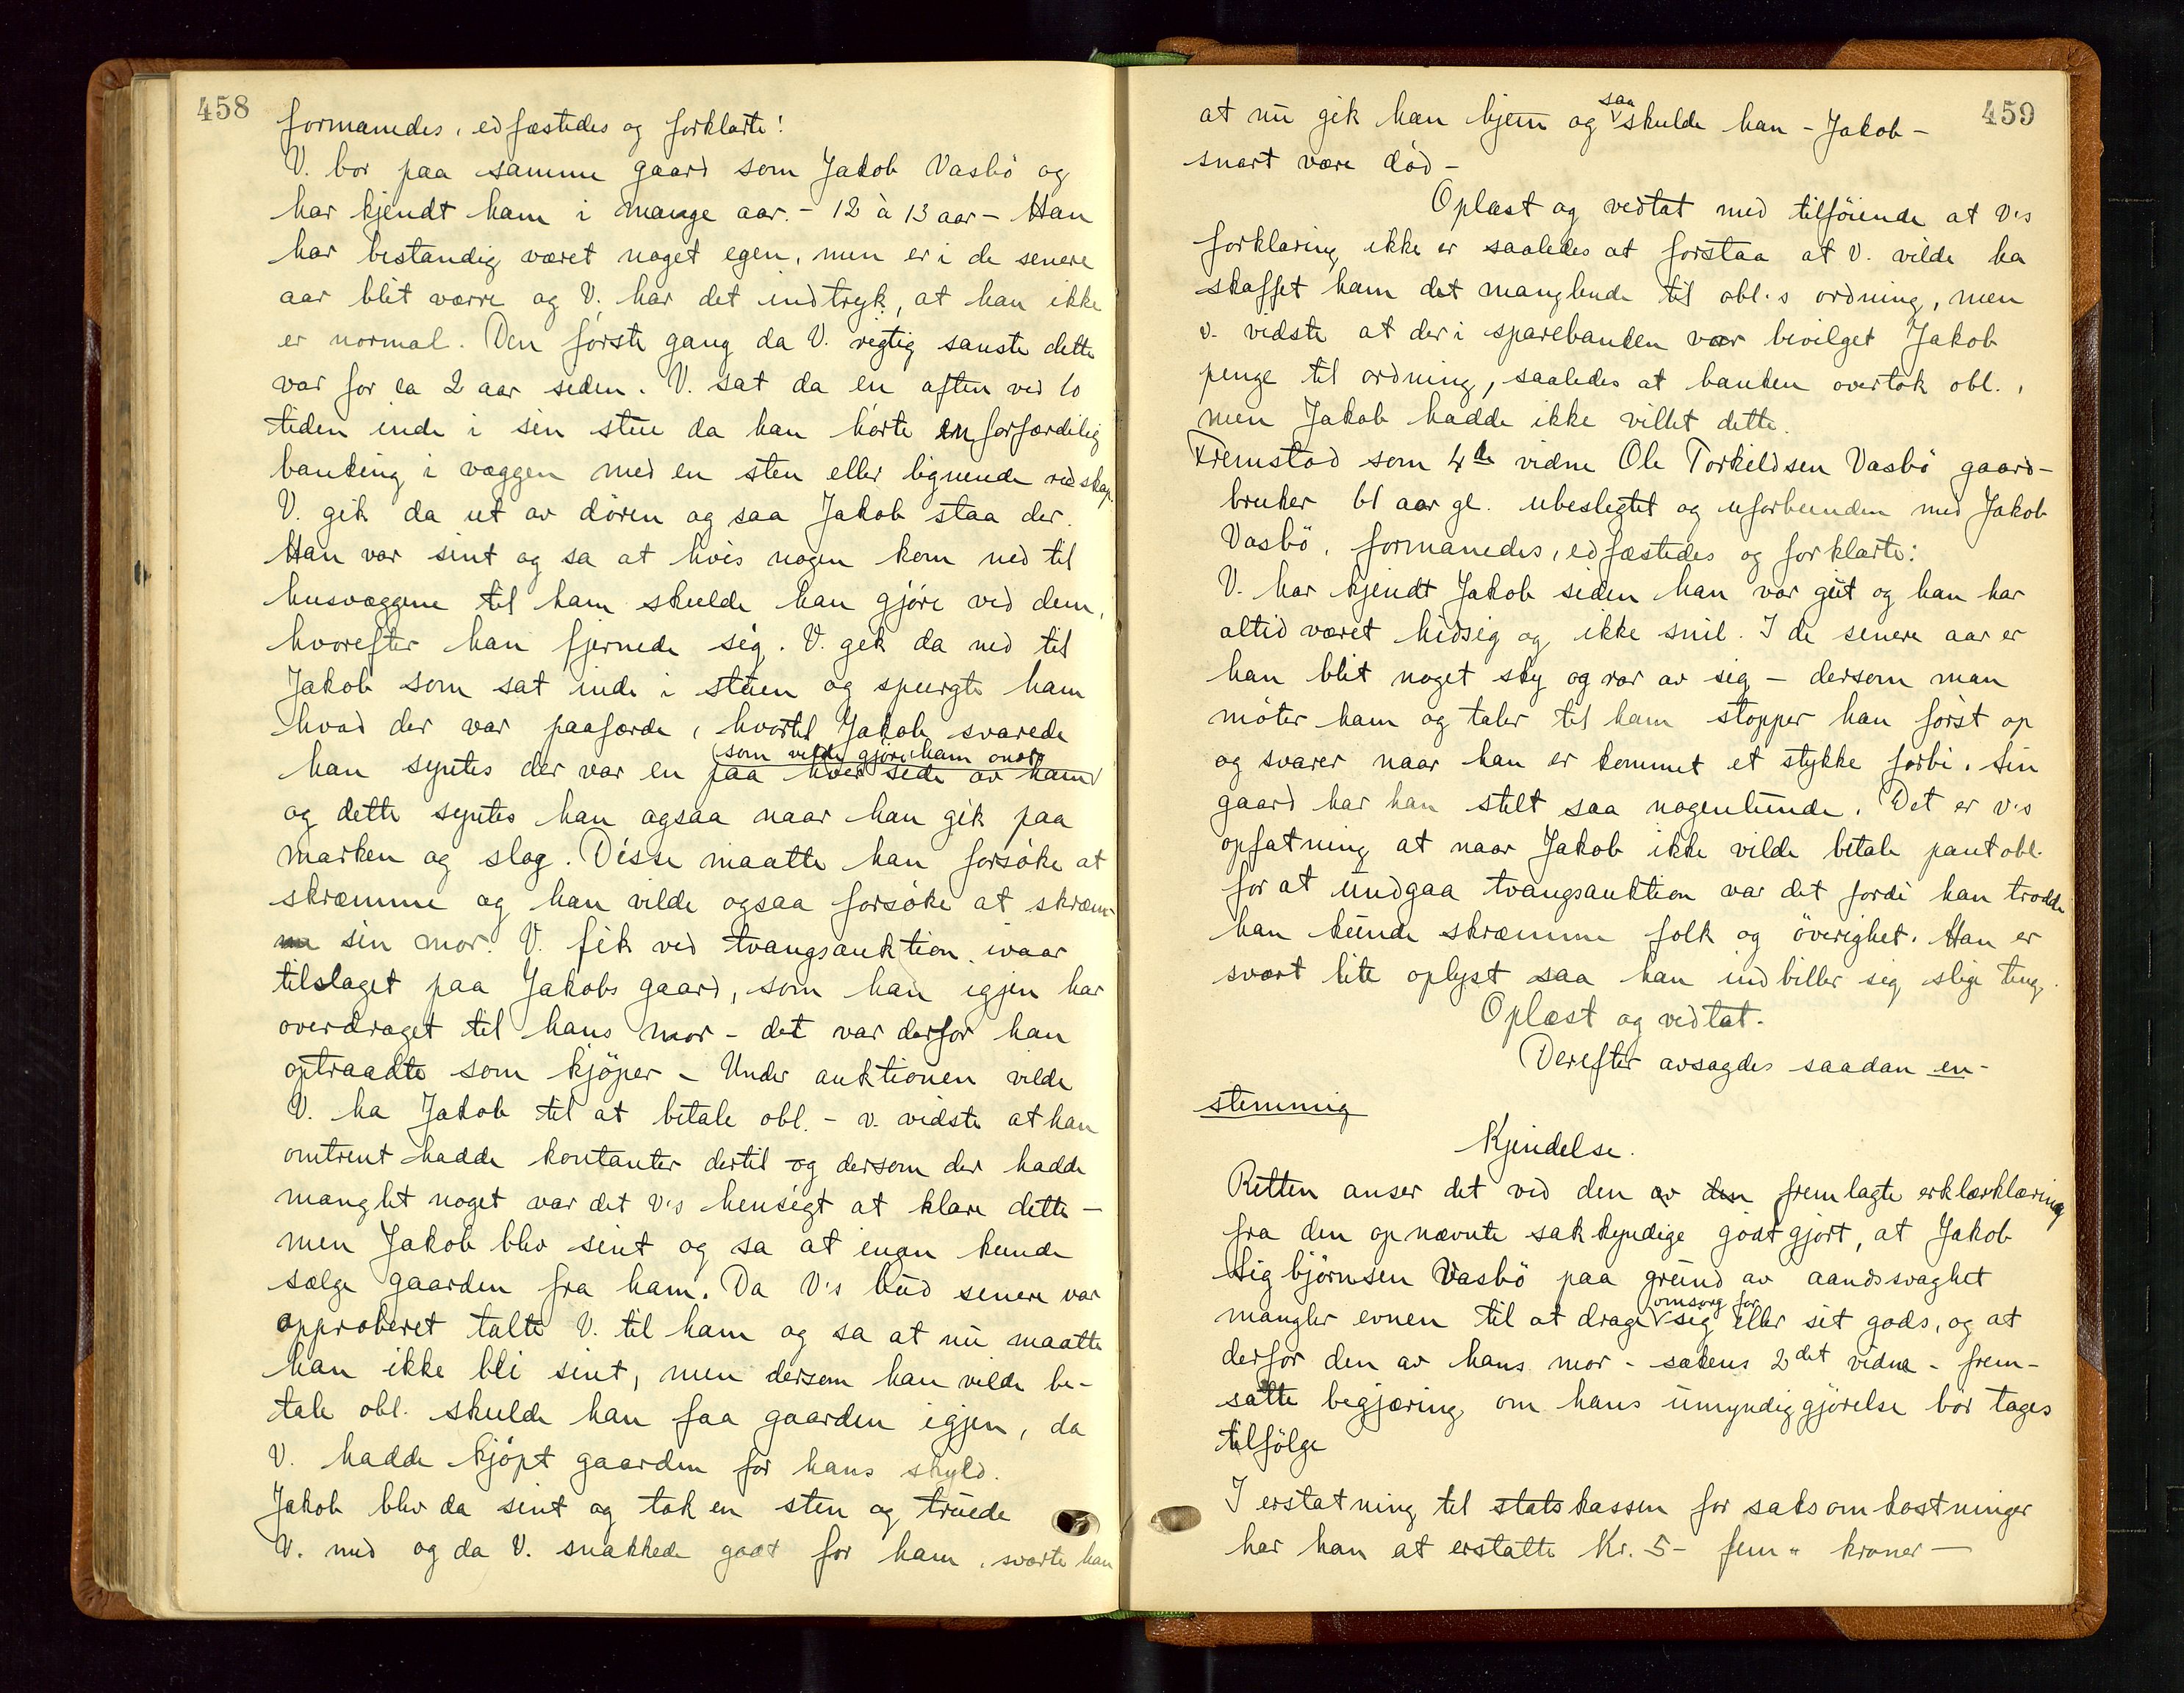 458
formanedes, edfæstedes og forklarte:
V. bor paa samme gaard som Jakob Vasbö og
har kjendt ham i mange aar. - 12 à 13 aar - Han
har bestandig været noget egen, men er i de senere
aar blit værre og V. har det indtryk, at han ikke
er normal. Den förste gang da V. rigtig sanste dette
var for ca 2 aar siden. V. sat da en aften ved 10
tiden inde i sin stue da han hörte en forfærdelig
banking i væggen med en sten eller lignende redskap.
V. gik da ut av dören og saa Jakob staa der.
Han var sint og sa at hvis nogen kom ned til
husvæggene til ham skulde han gjöre ved dem,
hvorefter han fjernede sig. V. gik da ned til
Jakob som sat inde i stuen og spurgte ham
hvad der var paafærde, hvortil Jakob svarede
(som vilde gjöre ham ondt)
han syntes der var en paa hver side av ham
og dette syntes han ogsaa naar han gik paa
marken og slog. Disse maatte han forsöke at
skræmme og han vilde ogsaa forsöke at skræm-
me sin mor. V. fik ved tvangsauktion ivaar
tilslaget paa Jakobs gaard, som han igjen har
overdraget til hans mor - det var derfor han
optraadte som kjöper - Under auktionen vilde
V. ha Jakob til at betale obl. - v. vidste at han
omtrent hadde kontanter dertil og dersom der hadde
manglet noget var det v's hensigt at klare dette -
men Jakob blev sint og sa at ingen kunde
sælge gaarden fra ham. Da V's bud senere var
approberet talte V. til ham og sa at nu maatte
han ikke bli sint, men dersom han vilde be-
tale obl. skulde han faa gaarden igjen, da
V. hadde kjöpt gaarden for hans skyld.
Jakob blev da sint og tok en sten og truede
V. med og da V. snakkede godt for ham, svarte han
459
saa
at nu gik han hjem og skulde han - Jakob -
snart være död -
Oplæst og vedtat med tilföiende at v's
forklaring ikke er saaledes at forstaa at V. vilde ha
skaffet ham det manglende til obl.s ordning, men
v. vidste at der i sparebanken var bevilget Jakob
penge til ordning, saaledes at banken overtok obl.,
men Jakob hadde ikke villet dette.
Fremstod som 4de vidne Ole Torkildsen Vasbö gaard-
bruker 61 aar gl. ubeslegtet og uforbunden med Jakob
Vasbö, formanedes, edfæstedes og forklarte:
V. har kjendt Jakob siden han var gut og han har
altid været hidsig og ikke snil. I de senere aar er
han blit noget sky og rar av sig - dersom man
möter ham og taler til ham stopper han först op
og svarer naar han er kommet et stykke forbi. Sin
gaard har han stelt saa nogenlunde. Det er v's
opfatning at naar Jakob ikke vilde betale pantobl.
for at undgaa tvangsauktion var det fordi han trodde
han kunde skræmme folk og överighet. Han er
svært lite oplyst saa han indbiller sig slige ting.
Oplæst og vedtat.
Derefter avsagdes saadan en-
stemmig
Kjendelse.
Retten anser det ved den av den fremlagte erklærklæring
fra den opnævnte sakkyndige godtgjort, at Jakob
Sigbjörnsen Vasbö paa grund av aandssvaghet
omsorg for
mangler evnen til at drage sig eller sit gods, og at
derfor den av hans mor - sakens 2det vidne - frem-
satte begjæring om hans umyndiggjörelse bör tages
tilfölge
I erstatning til statskassen for saksomkostninger
har han at erstatte Kr. 5 - fem " kroner -